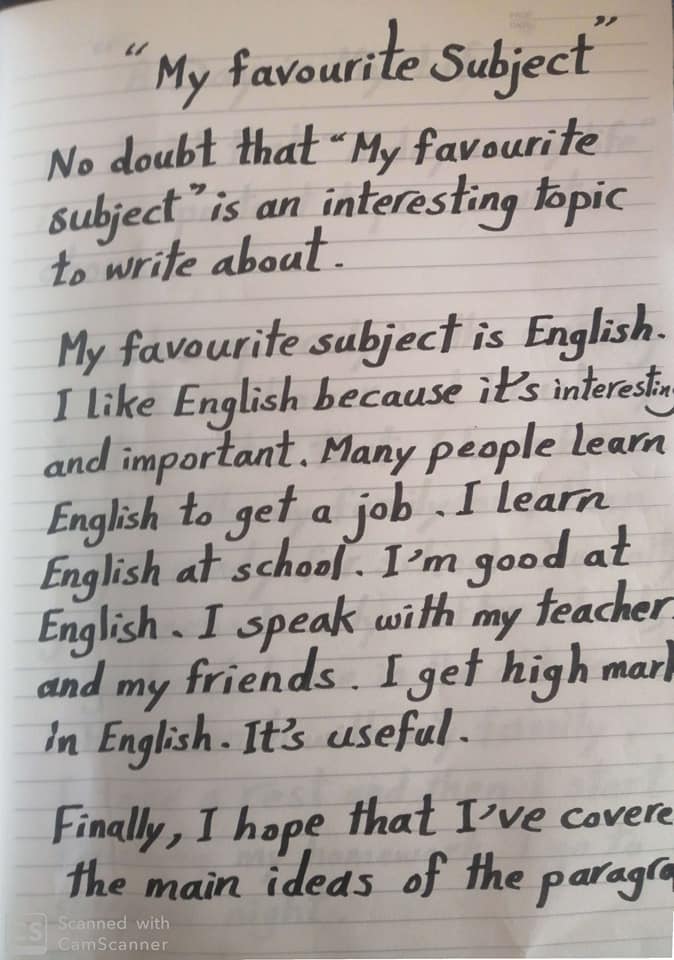 "My favourite Subject"
No doubt that "My favourite
subject" is an interesting topic
to write about.
My favourite subject is English.
I like English because it's interestin
and important. Many people learn
English to get a job. I learn
English at school. I'm good at
English. I speak with my teacher
and my friends. I get high mark
in English. It's useful.
Finally, I hope that I've covere
the main ideas of the paragra
Scanned with
CamScanner